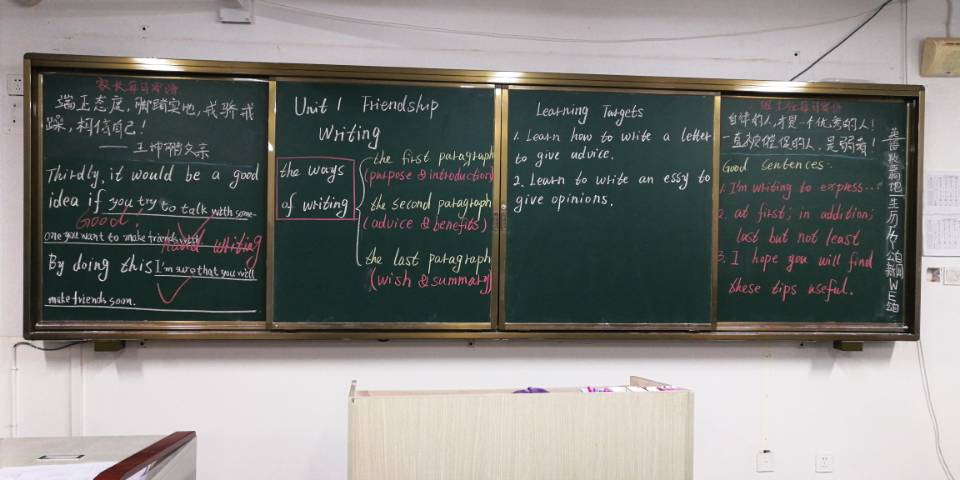 家长每日寄语
端正态度，脚踏实地，戒骄戒
躁，相信自己！
——王坤鹏父亲
Thirdly, it would be a good
idea if you try to talk with some-
Good!
one you want to make friends with
Hand writing
By doing this I'm sure that you will
make friends soon.
Unit 1 Friendship
Writing
the ways
of writing
the first paragraph
(purpose & introduction)
the second paragraph
(advice & benefits)
the last paragraph
(wish & summary)
Learning Targets
1. Learn how to write a letter
to give advice.
2. Learn to write an essy to
give opinions.
班主任每日寄语
自律的人，才是一个优秀的人！
一直被催促的人，是弱者！
Good sentences:
1. I'm writing to express...
2. at first; in addition;
last but not least
3. I hope you will find
these tips useful.